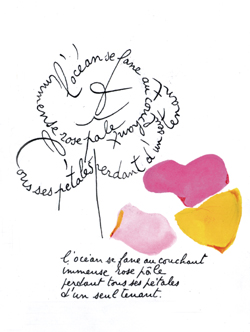 l'océan se fane
au couchant
immense rose pâle
perdant d'un
tous ses pétales
l'océan se fane au couchant
immense rose pâle
perdant tous ses pétales
d'un seul tenant.